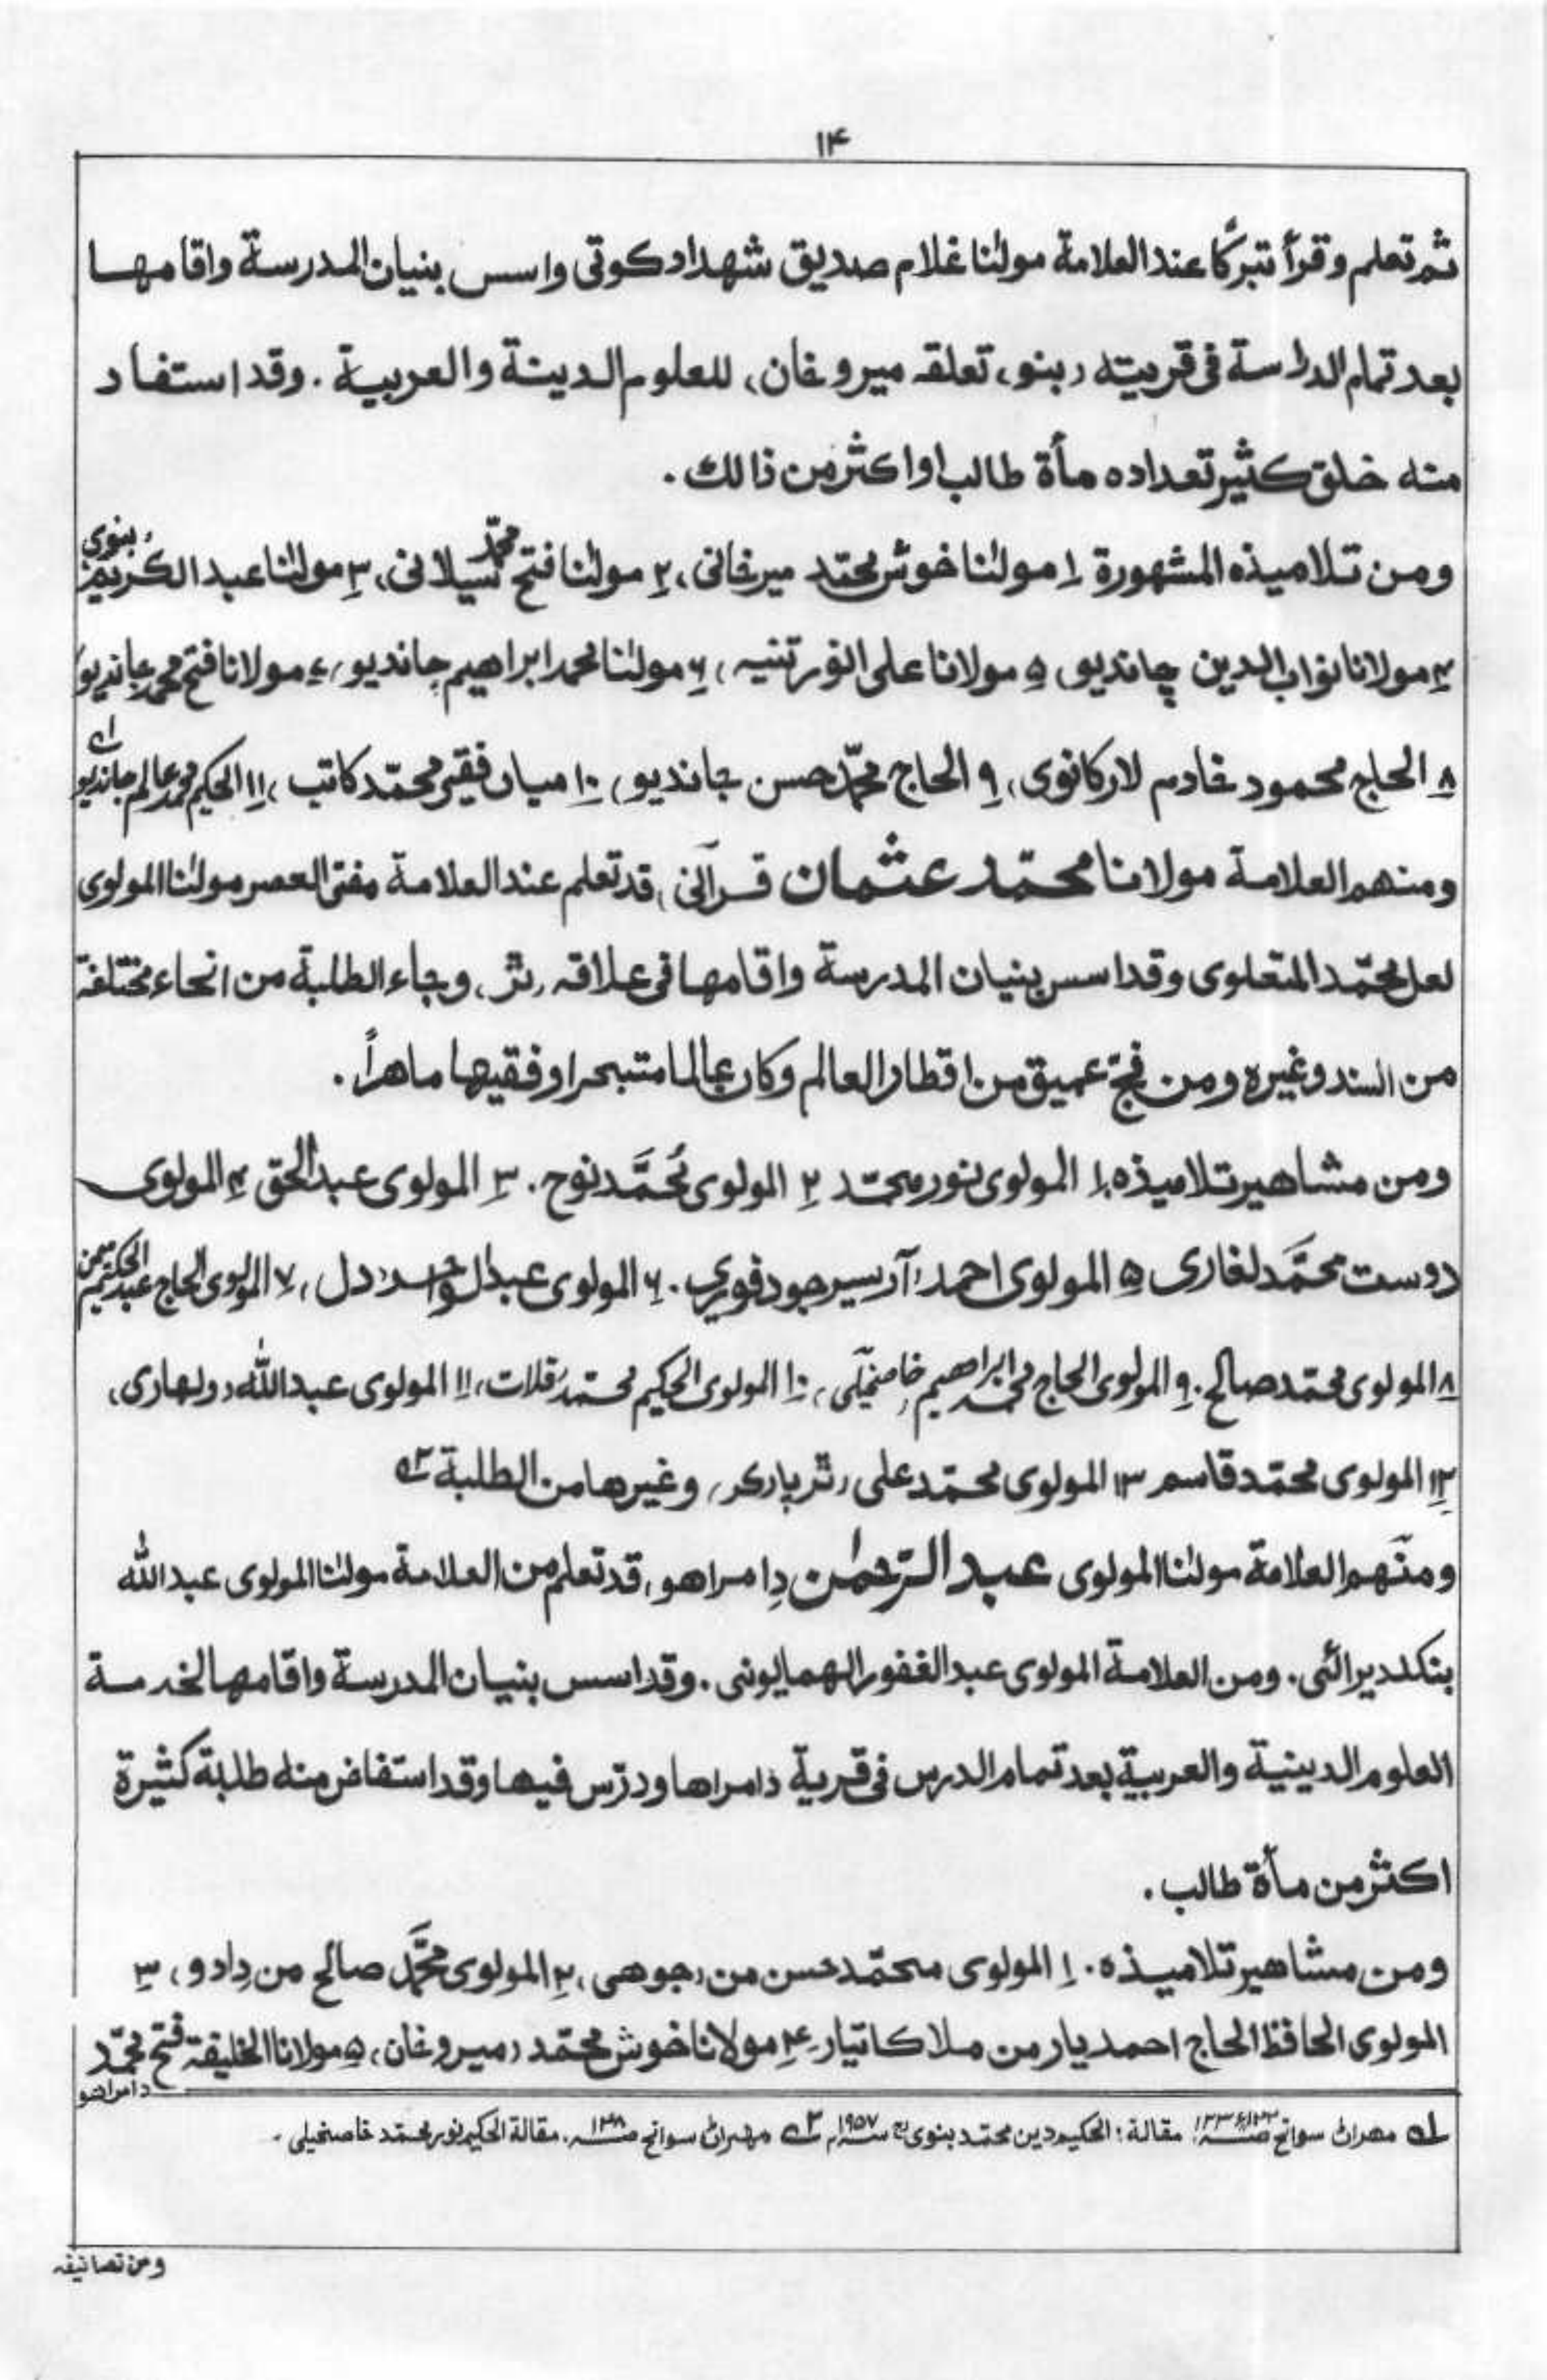 ۱۴
ثم تعلم وقرأ تبركًا عند العلامة مولٰنا غلام صديق شهدادكوتى واسس بنيان المدرسة واقامها
بعد تمام الدراسة فى قريته (بنو، تعلقه ميروخان) للعلوم الدينة والعربية . وقد استفاد
منه خلق كثير تعداده مأة طالب او اكثر من ذالك .
ومن تلاميذه المشهورة ۱ مولٰنا خوش محمّد ميرخانى، ۲ مولٰنا فتح محمّد سيلانى، ۳ مولٰنا عبد الكريم بنوى
۴ مولانا نواب الدين چانديو، ۵ مولانا على النور تنيه، ۶ مولٰنا محمد ابراهيم چانديو، ۷ مولانا فتح محمد چانديو
۸ الحاج محمود خادم لاركانوى، ۹ الحاج محمّد حسن چانديو، ۱۰ ميان فقير محمّد كاتب، ۱۱ الحكيم محمد عالم چانديو ١ـه
ومنهم العلامة مولانا محمّد عثمان قرآنى، قد تعلم عند العلامة مفتى العصر مولٰنا المولوى
لعل محمّد المتعلوى وقد اسس بنيان المدرسة واقامها فى علاقه (ثر) وجاء الطلبة من انحاء مختلفة
من السند وغيره ومن فجّ عميق من اقطار العالم وكان عالما متبحرا وفقيها ماهراً .
ومن مشاهير تلاميذه ۱ المولوى نور محمّد ۲ المولوى مُحَمَّد نوح . ۳ المولوى عبد الحق ۴ المولوى
دوست محمَّد لغارى ۵ المولوى احمد، آريسر جودفوري . ۶ المولوى عبد الواحد، دل، ۷ المولوى الحاج عبد الحكيم ميمن
۸ المولوى محمّد صالح . ۹ المولوى الحاج محمد ابراهيم، خاصخيلى، ۱۰ المولوى الحكيم محمّد، قلات، ۱۱ المولوى عبد الله، دولهارى،
۱۲ المولوى محمّد قاسم ۱۳ المولوى محمّد على، ثرپاركر، وغيرها من الطلبة ۲ـه
ومنهم العلامة مولٰنا المولوى عبد الرّحمٰن دامراهو، قد تعلم من العلامة مولٰنا المولوى عبد الله
بنكلديرائى . ومن العلامة المولوى عبد الغفور الهمايونى . وقد اسس بنيان المدرسة واقامها لخدمة
العلوم الدينية والعربية بعد تمام الدرس فى قرية دامراها ودرّس فيها وقد استفاض منه طلبة كثيرة
اكثر من مأة طالب .
ومن مشاهير تلاميذه . ۱ المولوى محمّد حسن من، جوهى، ۲ المولوى محمَّد صالح من دادو، ۳
المولوى الحافظ الحاج احمد يار من ملا كاتيار ۴ مولانا خوش محمّد، ميروخان، ۵ مولانا الخليفة فتح محمّد
دامراهو
١ـه مهران سوانح مقالة : الحكيم دين محمّد بنوى سنه ۱۹۵۷م ۲ـه مهران سوانح صـ . مقالة الحكيم نور محمّد خاصخيلى .
ومن تصانيفه